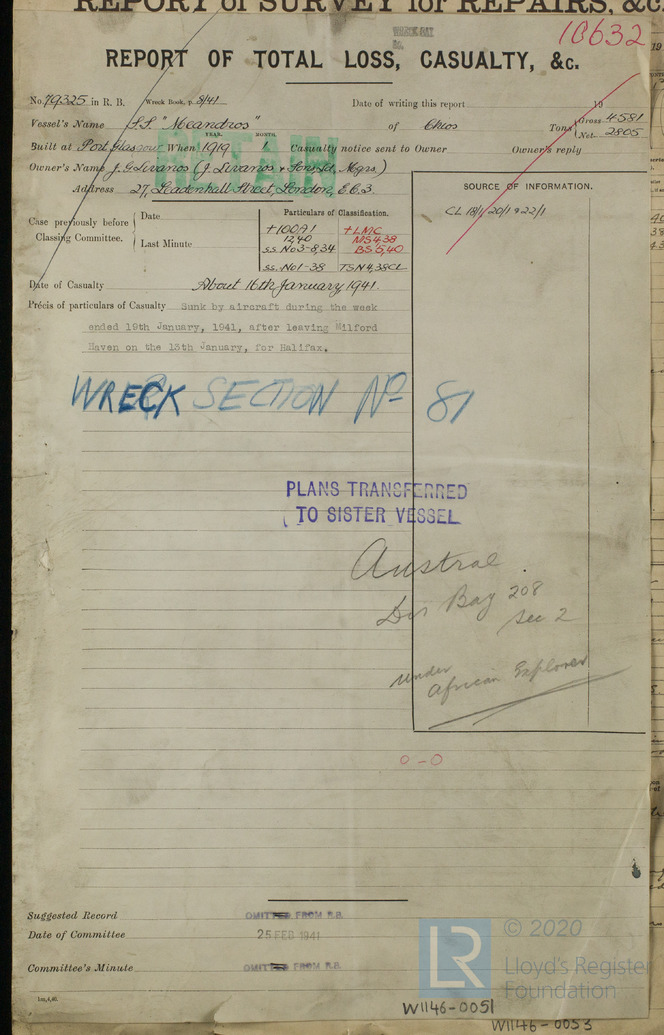 REPORT of SURVEY for REPAIRS, &c.
10632
WRECK BAY
REPORT OF TOTAL LOSS, CASUALTY, &c.
No. 79325 in R. B. Wreck Book, p. 8/41 Date of writing this report 19
Vessel's Name S.S. "Meandros" of Chios Tons Gross 4581 Net 2805
YEAR. MONTH.
Built at Port Glasgow When 1919 1 Casualty notice sent to Owner Owner's reply
RETAIN
Owner's Name J. G. Livanos (J. Livanos & Sons Ld., Mgrs.)
Address 27, Leadenhall Street, London, E.C.3.
SOURCE OF INFORMATION.
CL 18/1, 20/1 & 22/1
Case previously before Classing Committee. Date
Last Minute
Particulars of Classification.
+100A1 +LMC
12,40 MS 4,38
ss. No3-8,34 BS 5,40
ss. No1-38 TSN 4,38CL
Date of Casualty About 16th January 1941.
Précis of particulars of Casualty Sunk by aircraft during the week
ended 19th January, 1941, after leaving Milford
Haven on the 13th January, for Halifax.
WRECK SECTION No 81
PLANS TRANSFERRED
TO SISTER VESSEL
Austral
Bay 208
Sec 2
under
African Explorer
0-0
Suggested Record OMITTED FROM R.B.
Date of Committee 25 FEB 1941
Committee's Minute OMITTED FROM R.B.
1m,4,40.
LR © 2020
Lloyd's Register
Foundation
W1146-0051
W1146-0053